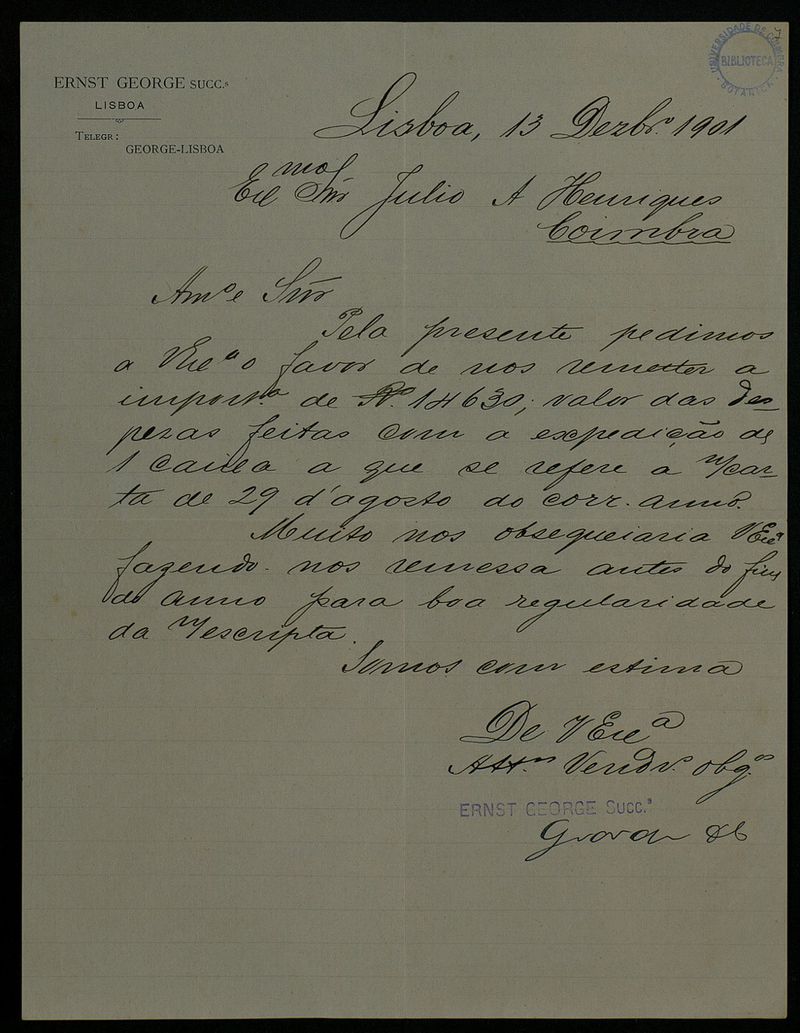 ERNST GEORGE SUCC.s
LISBOA
TELEGR:
GEORGE-LISBOA
UNIVERSIDADE DE COIMBRA
BIBLIOTECA
BOTANICA
Lisboa, 13 Dezbr.o 1901
Exmo Snr Julio A Henriques
Coimbra
Am.o e Snr
Pela presente pedimos
a VExc.a o favor de nos remetter a
import.a de Rs. 14630, valor das des-
pezas feitas com a expedição de
1 caixa a que se refere a n/car-
ta de 29 d'agosto do corr. anno.
Muito nos obsequiaria VExc.a
fazendo-nos remessa antes do fim
do anno para boa regularidade
da n/escripta.
Somos com estima
De VExc.a
Att.os Vendr.s obg.os
ERNST GEORGE Succ.s